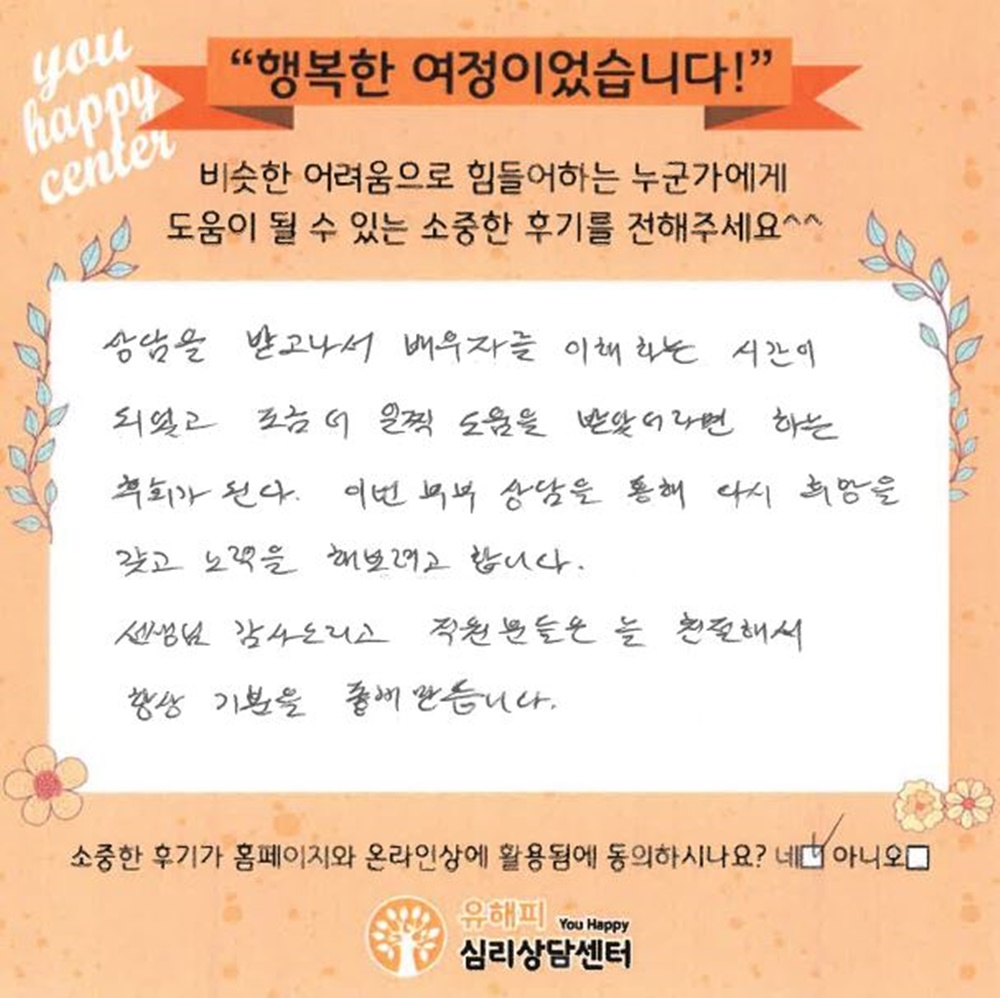 you
happy
center
“행복한 여정이었습니다!”
비슷한 어려움으로 힘들어하는 누군가에게
도움이 될 수 있는 소중한 후기를 전해주세요^^
상담을 받고나서 배우자를 이해하는 시간이
되었고 조금 더 일찍 도움을 받았더라면 하는
후회가 된다. 이번 부부 상담을 통해 다시 희망을
갖고 노력을 해보려고 합니다.
선생님 감사드리고 직원분들은 늘 친절해서
항상 기분을 좋게 만듭니다.
소중한 후기가 홈페이지와 온라인상에 활용됨에 동의하시나요? 네 아니오
유해피 You Happy
심리상담센터